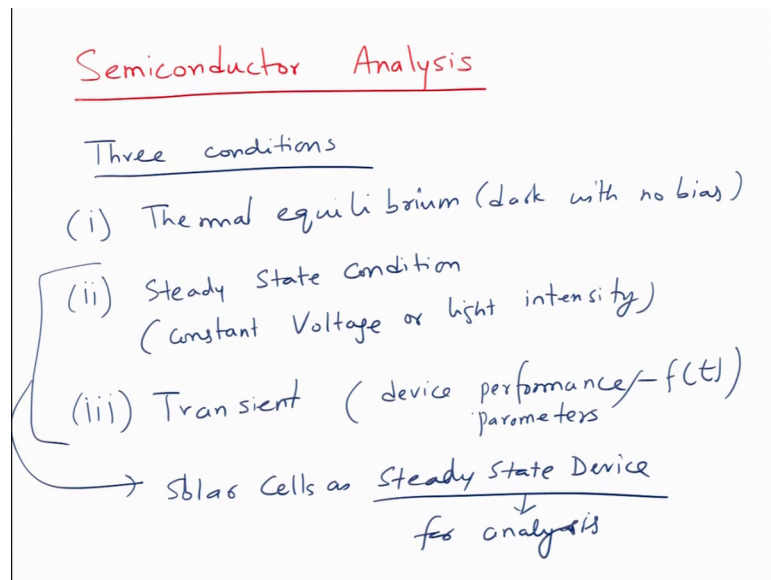 Semiconductor Analysis
Three conditions
(i) Thermal equilibrium (dark with no bias)
(ii) Steady State Condition
(Constant Voltage or light intensity)
(iii) Transient ( device performance/ - f(t))
parameters
Solar Cells as Steady State Device
for analysis